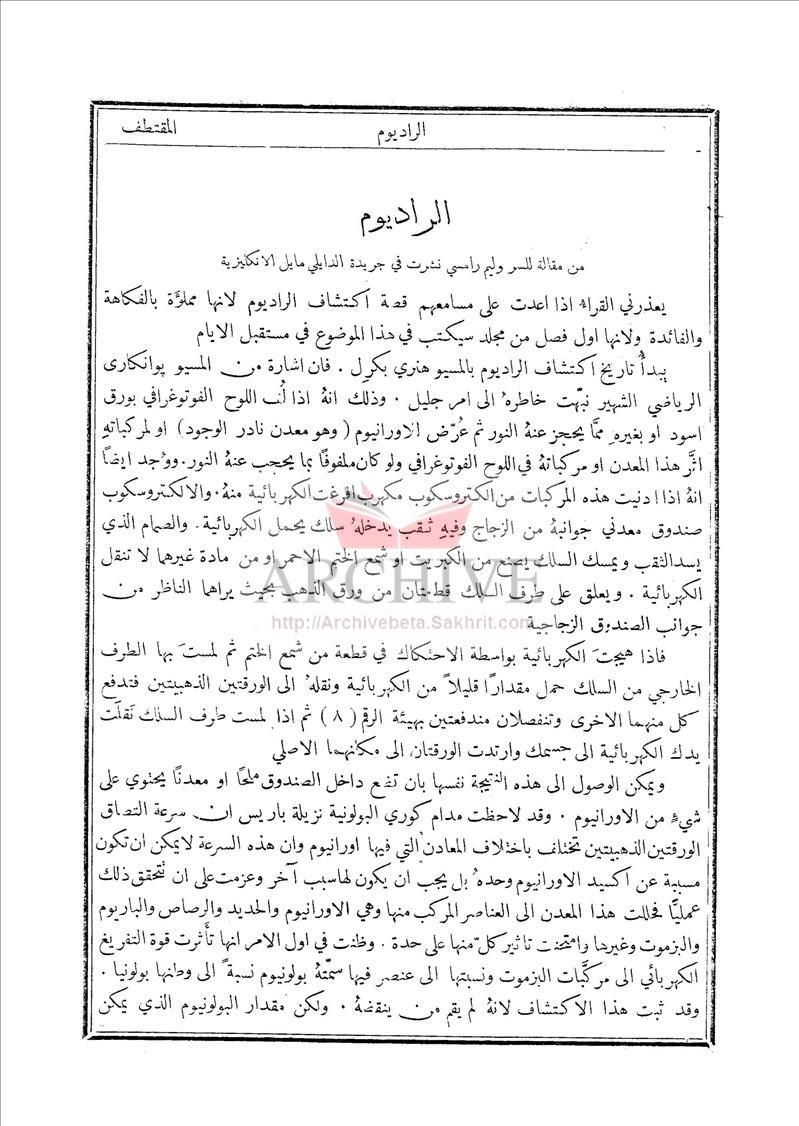 الراديوم
المقتطف
الراديوم
من مقالة للسر وليم رامسي نشرت في جريدة الدايلي مايل الانكليزية
يعذرني القراءُ اذا اعدت على مسامعهم قصة اكتشاف الراديوم لانها مملؤَة بالفكاهة
والفائدة ولانها اول فصل من مجلد سيكتب في هذا الموضوع في مستقبل الايام
يبدأُ تاريخ اكتشاف الراديوم بالمسيو هنري بكرل . فان اشارة من المسيو پوانكارى
الرياضي الشهير نبّهت خاطرهُ الى امر جليل . وذلك انهُ اذا لُف اللوح الفوتوغرافي بورق
اسود او بغيرهِ ممَّا يحجز عنهُ النور ثم عُرّض الاورانيوم ( وهو معدن نادر الوجود ) او لمركباتهِ
اثَّر هذا المعدن او مركباتهُ في اللوح الفوتوغرافي ولو كان ملفوفًا بما يحجب عنهُ النور. ووُجد ايضاً
انهُ اذا ادنيت هذه المركبات من الكتروسكوب مكهرب افرغت الكهربائية منهُ. والالكتروسكوب
صندوق معدني جوانبهُ من الزجاج وفيهِ ثقب يدخلهُ سلك يحمل الكهربائية . والصمام الذي
يسد الثقب ويمسك السلك يصنع من الكبريت او شمع الختم الاحمر او من مادة غيرهما لا تنقل
الكهربائية . ويعلق على طرف السلك قطعتان من ورق الذهب بحيث يراهما الناظر من
جوانب الصندوق الزجاجية
فاذا هيجتَ الكهربائية بواسطة الاحتكاك في قطعة من شمع الختم ثم لمستَ بها الطرف
الخارجي من السلك حمل مقدارًا قليلاً من الكهربائية ونقلهُ الى الورقتين الذهبيتين فتدفع
كل منهما الاخرى وتنفصلان مندفعتين بهيئة الرقم ( ٨ ) ثم اذا لمست طرف السلك نَقَلَت
يدك الكهربائية الى جسمك وارتدت الورقتان الى مكانهما الاصلي
ويمكن الوصول الى هذه النتيجة نفسها بان تضع داخل الصندوق ملحًا او معدنًا يحتوي على
شيءٍ من الاورانيوم . وقد لاحظت مدام كوري البولونية نزيلة باريس ان سرعة التصاق
الورقتين الذهبيتين تختلف باختلاف المعادن التي فيها اورانيوم وان هذه السرعة لا يمكن ان تكون
مسببة عن اكسيد الاورانيوم وحدهُ بل يجب ان يكون لها سبب آخر وعزمت على ان تتحقق ذلك
عمليًّا فحللت هذا المعدن الى العناصر المركب منها وهي الاورانيوم والحديد والرصاص والباريوم
والبزموت وغيرها وامتحنت تاثير كلّ منها على حدة . وظنت في اول الامر انها تأَثرت قوة التفريغ
الكهربائي الى مركَّبات البزموت ونسبتها الى عنصر فيها سمَّتهُ بولونيوم نسبةً الى وطنها بولونيا .
وقد ثبت هذا الاكتشاف لانهُ لم يقم من ينقضهُ . ولكن مقدار البولونيوم الذي يمكن
ARCHIVE
http://Archivebeta.Sakhrit.com